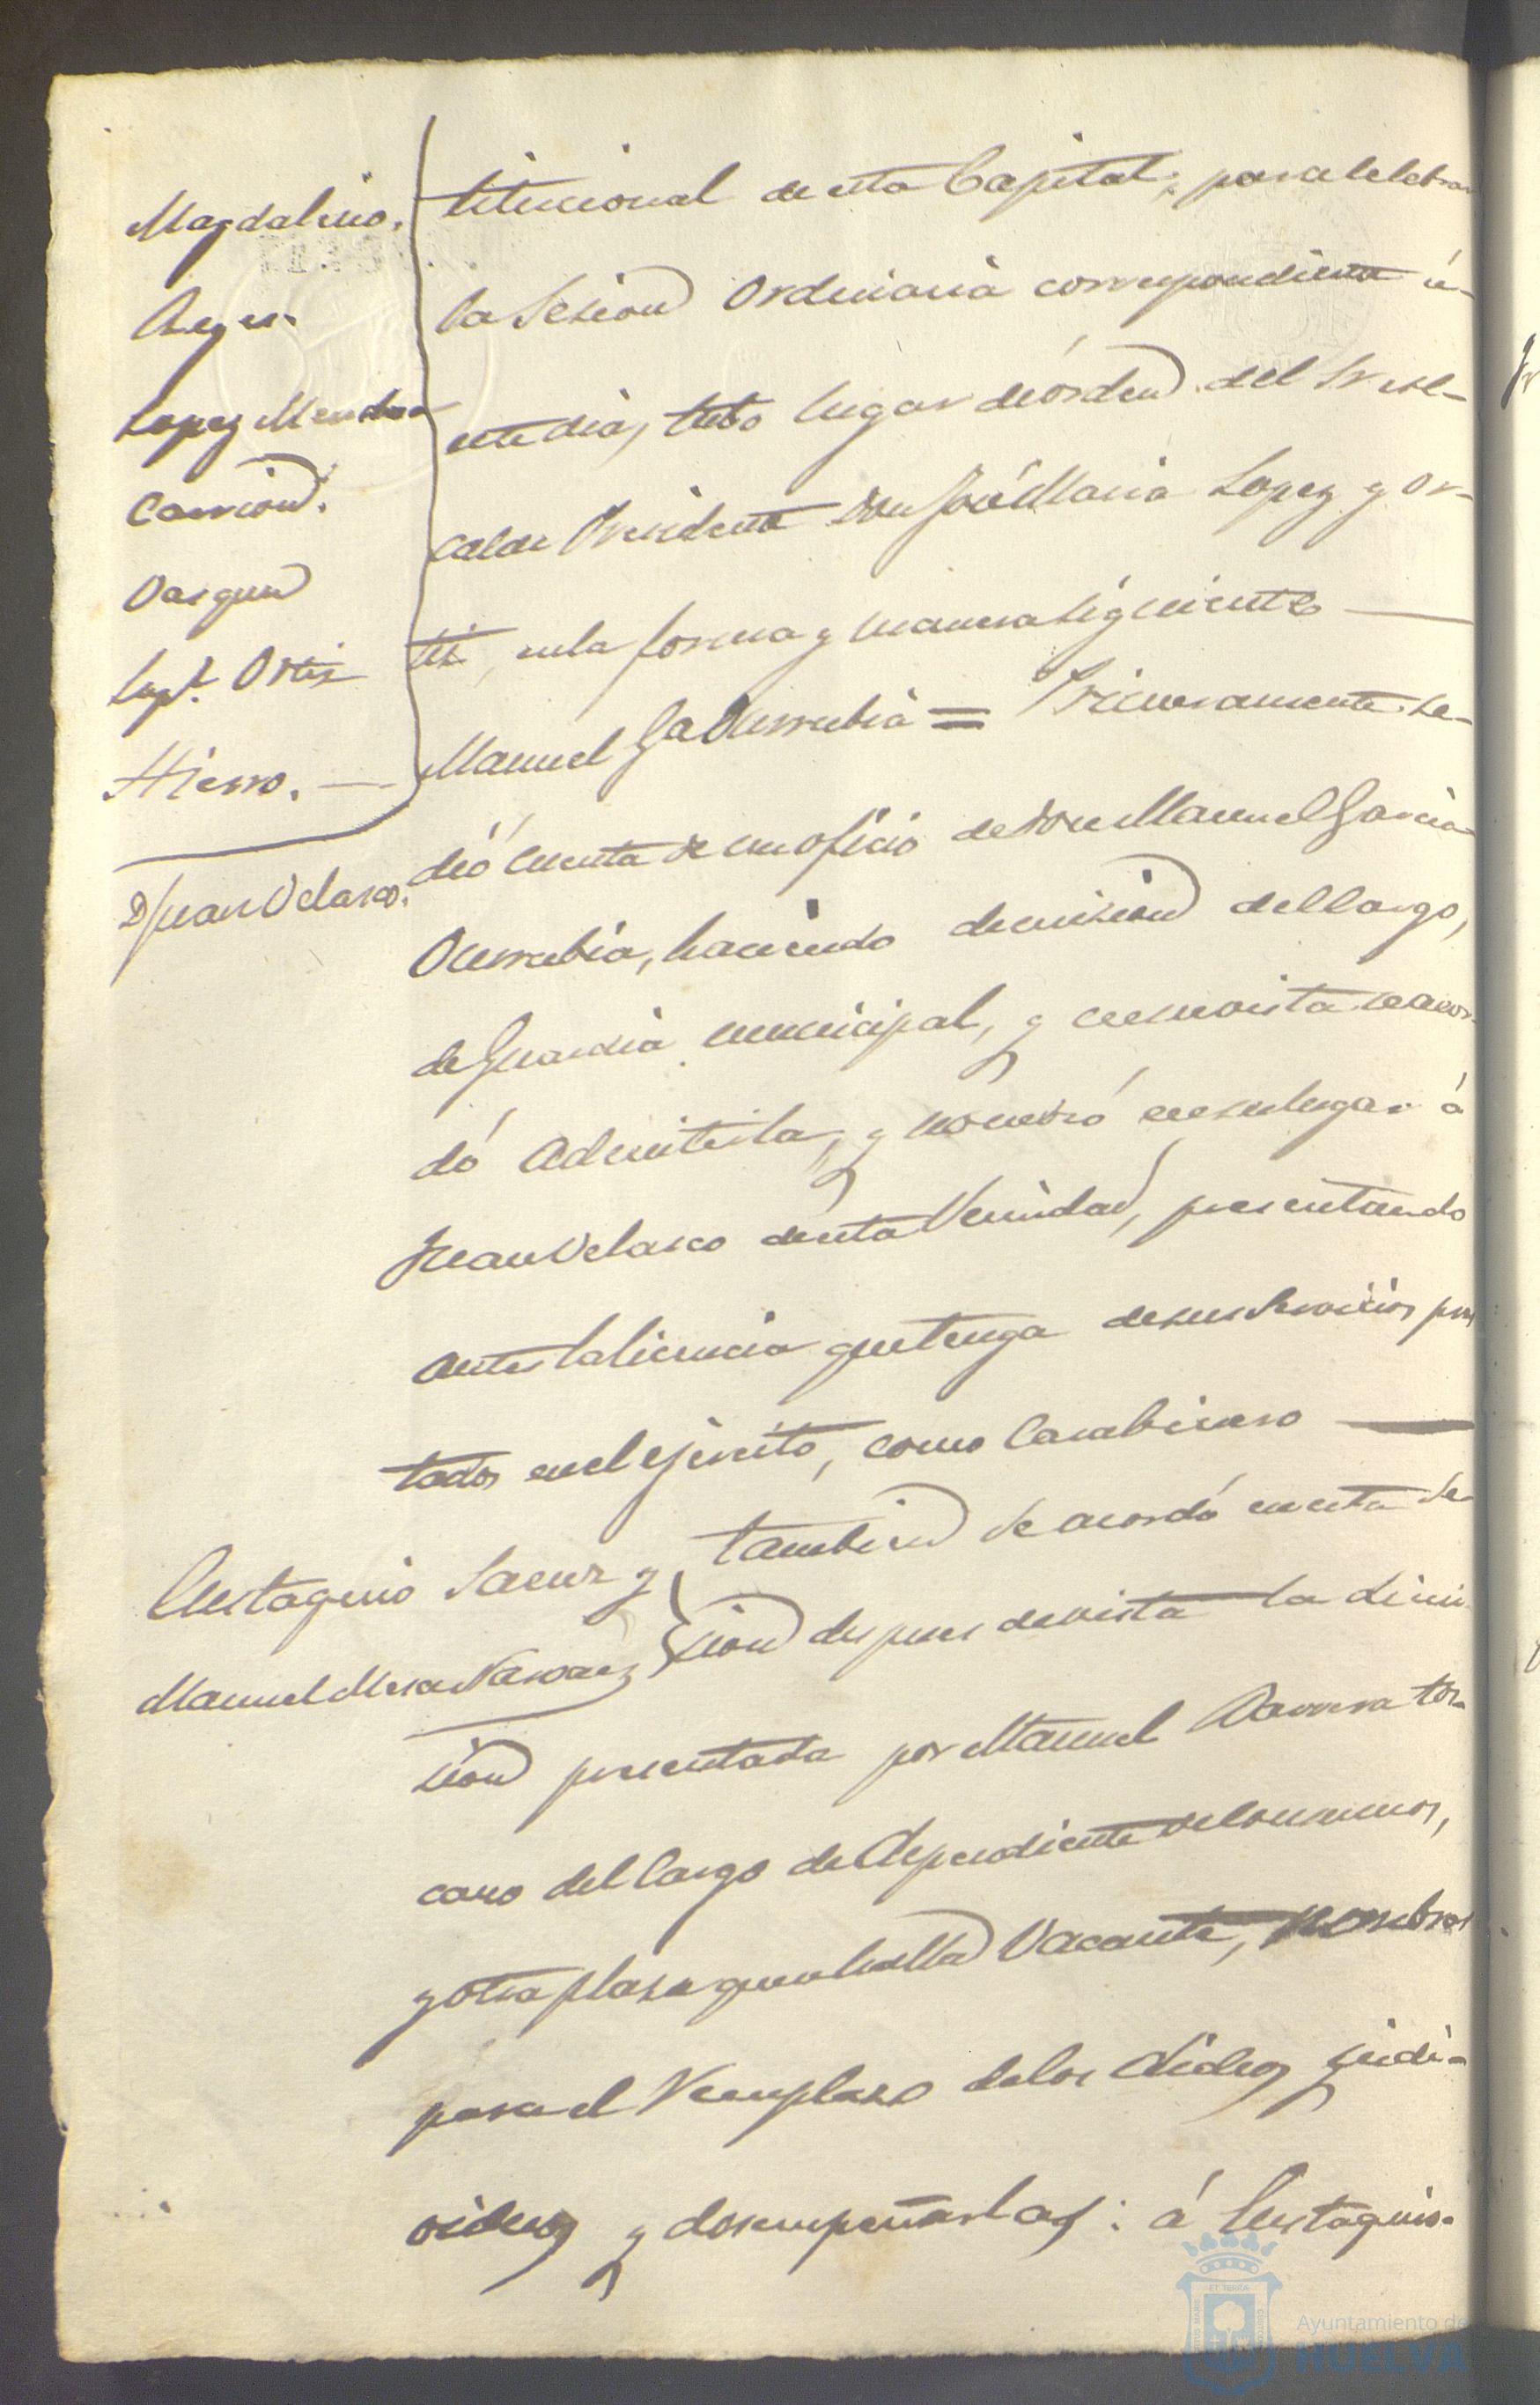 Magdaleno.
Reyes.
Lopez Mendoza
Carrion.
Oarguen
Lopz. Ortiz
Hierro.
D Juan Velasco.
titucional de esta Capital, para celebrar
la Sesion Ordinaria correspondiente á
este dia, tubo lugar de órden del Sr Al-
calde Presidente Don José Maria Lopez y Or-
tiz, en la forma y manera siguiente
Manuel Ga Ocerrubia = Primeramente se
dió cuenta de un oficio de Don Manuel Garcia
Ocerrubia, haciendo dimision del cargo,
de Guardia municipal, y en su vista se acor
dó Admitirla, y nombró en su lugar á
Juan Velasco de esta Vecindad, presentando
antes la licencia que tenga de sus Servicios pres
tados en el ejercito, como Carabinero
Eustaquio Saenz y
Manuel Mesa Narvaez
tambien se acordó en esta Se
sion despues de vista la dimi
sion presentada por Manuel Barrera tos-
cano del Cargo de Dependiente de Consumos,
y otra plaza que se halla Vacante, nombrar
para el Remplazo de los dichos indi-
viduos y desempeñarlas: á Eustaquio
Ayuntamiento de
HUELVA